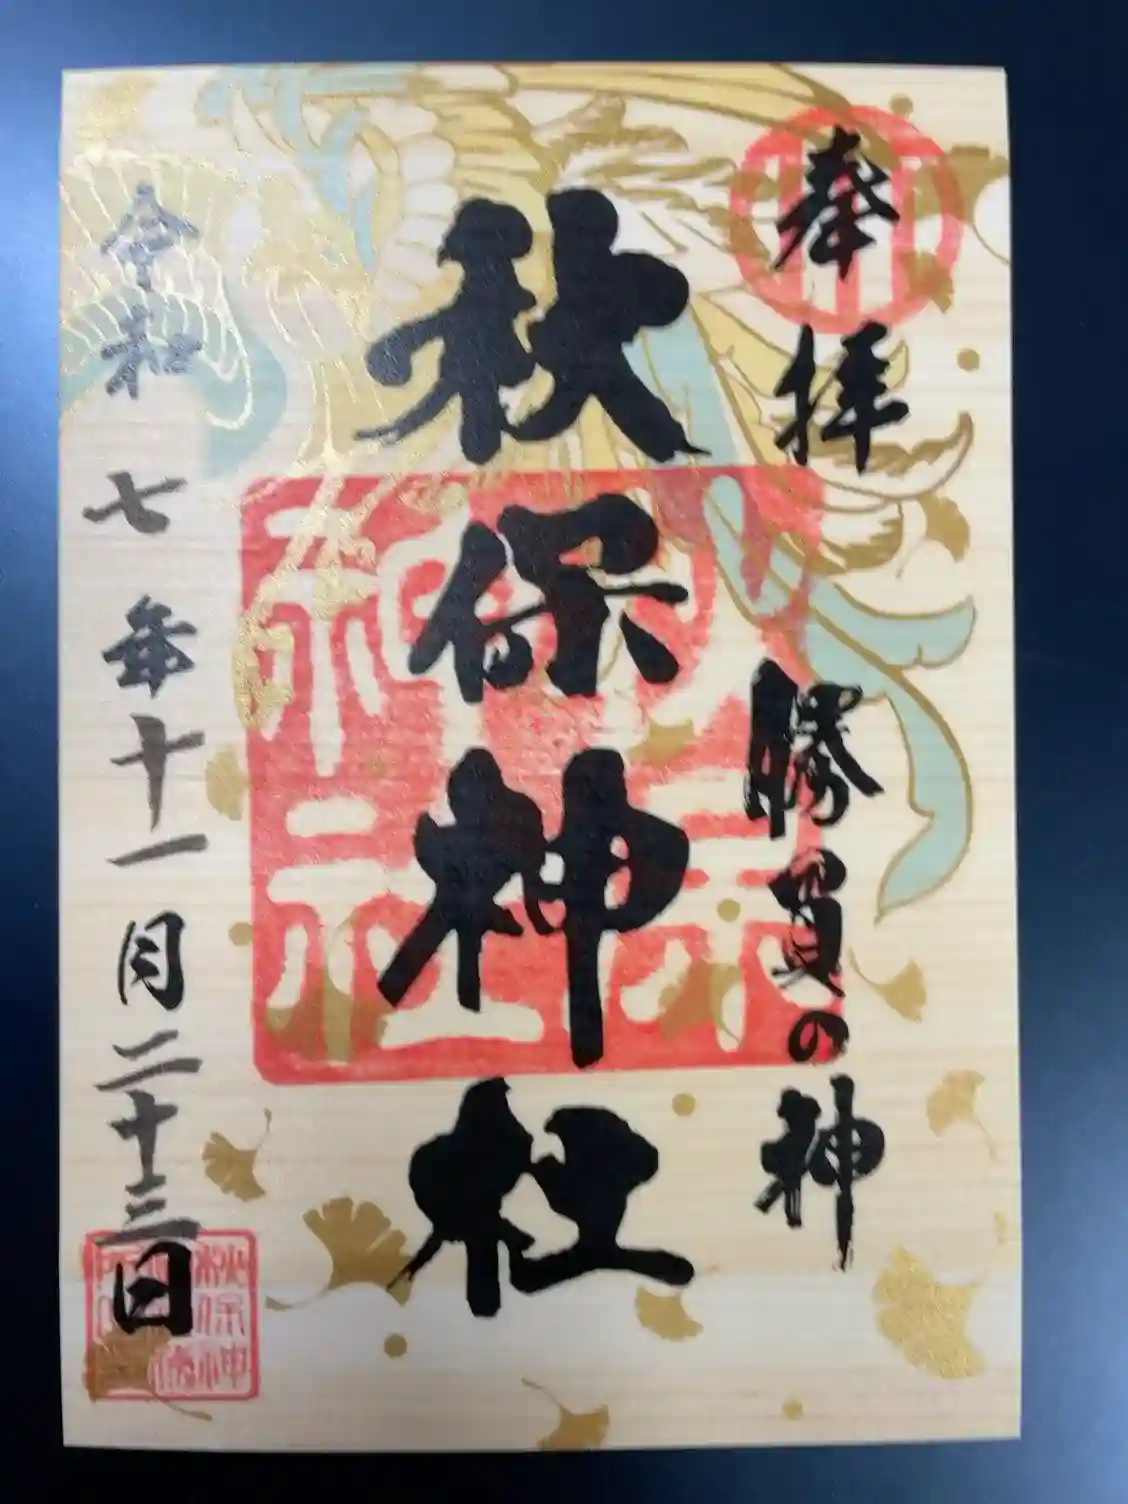 奉拝
勝負の神
秋保神社
令和七年十一月二十三日
秋保神社